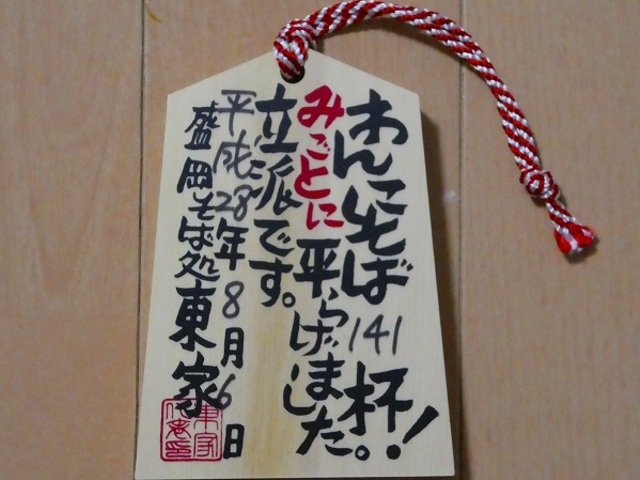 わんこそば141杯!
みごとに平らげました。
立派です。
平成28年8月6日
盛岡そば処東家